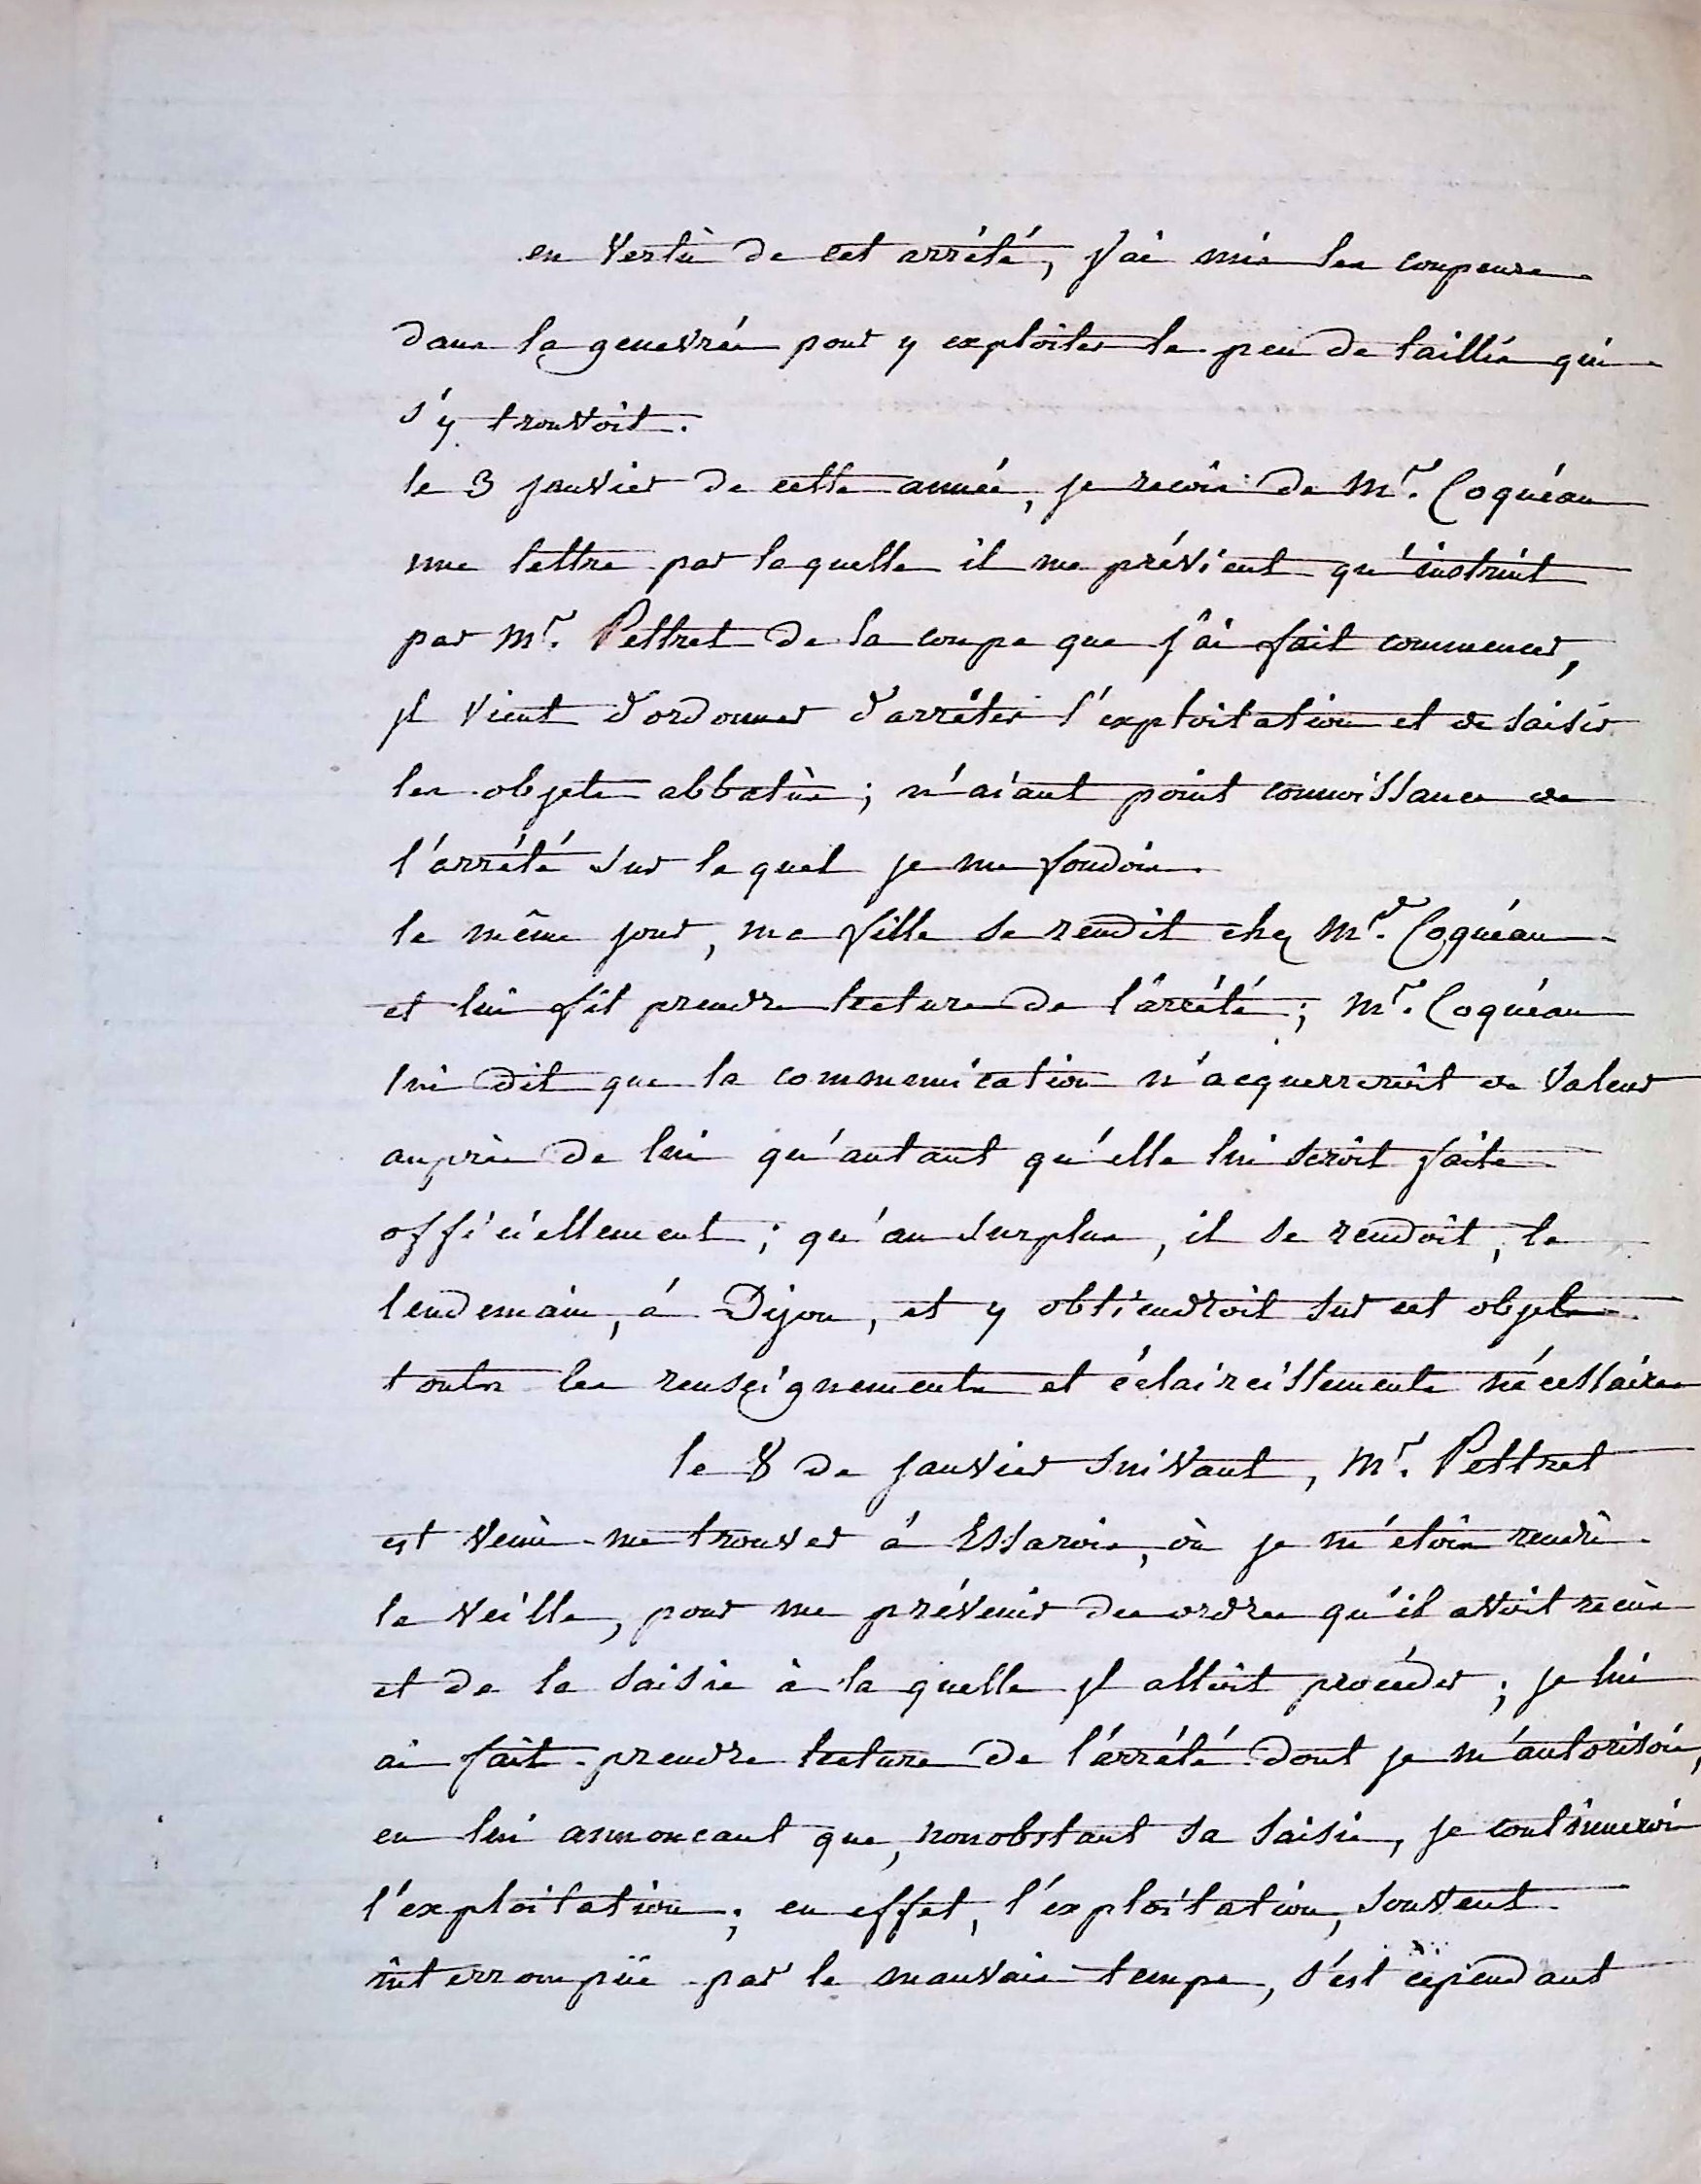 en Vertù de cet arrété, j'ai mis les coupeurs
dans la genevrée pour y exploiter le peu de taillis qui
s'y trouvoit.
le 3 janvier de cette année, je recois de Mr. Coquéau
une lettre par laquelle il me prévient qu'instruit
par Mr. Pettret de la coupe que j'ai fait commencer,
jl vient d'ordonner d'arrêter l'exploitation et de saisir
les objets abbatùs ; n'aiant point connoissance de
l'arrété sur le quel je me fondois.
le même jour, ma fille se rendit chez Mr. Coquéau
et lui fit prendre lecture de l'arrété ; Mr. Coquéau
lui dit que la communication n'acquerreroit de valeur
auprès de lui qu'autant qu'elle lui seroit faite
officiellement ; qu'au surplus, il se rendoit, le
lendemain, á Dijon, et y obtiendroit sur cet objet
toutes les renseignements et éclaircissements nécessaires
le 8 de janvier suivant, Mr. Pettret
est venù me trouver á Essarois, où je m'étois rendù
la veille, pour me prévenir des ordres qu'il avoit recùs
et de la saisie à la quelle jl alloit procéder ; je lui
ai fait prendre lecture de l'arrété dont je m'autorisois,
en lui annoncant que, nonobstant sa saisie, je continuerois
l'exploitation ; en effet, l'exploitation, souvent
interrompüe par le mauvais temps, s'est cependant